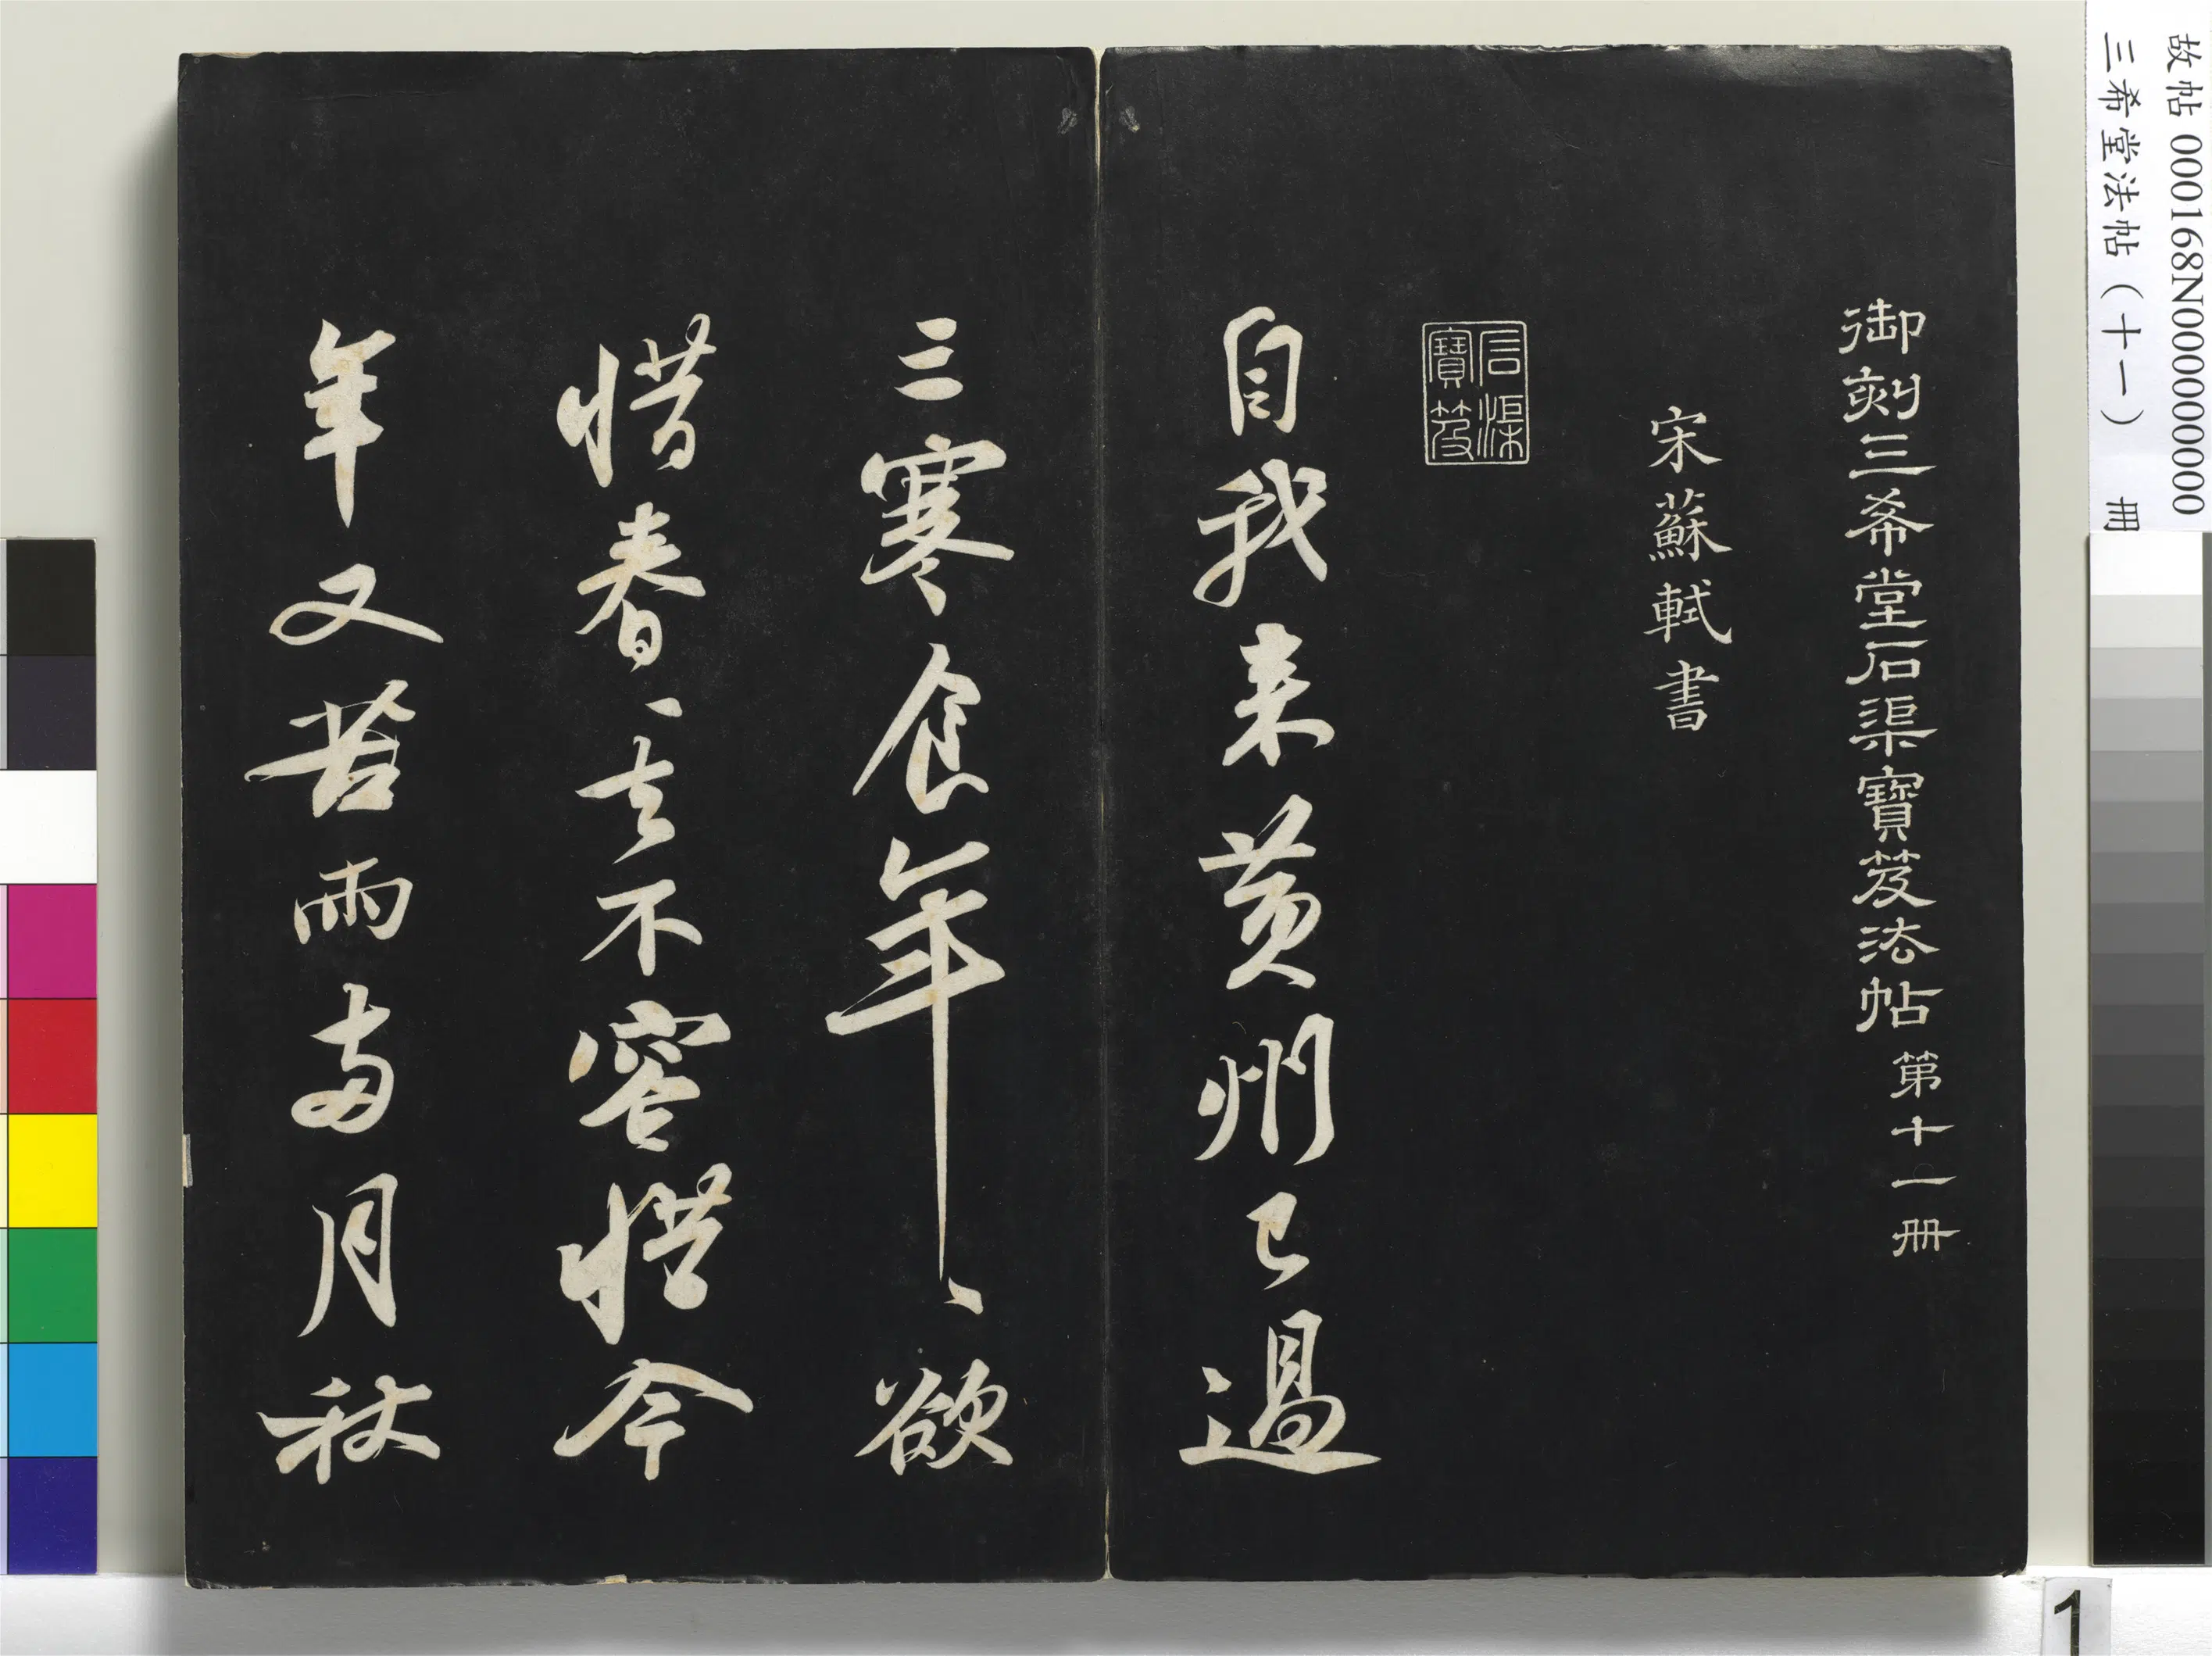 故帖 000168N000000000
三希堂法帖（十一） 冊
御刻三希堂石渠寶笈法帖 第十一冊
宋蘇軾書
石渠寶笈
自我来黄州已過
三寒食年〻欲
惜春〻去不容惜今
年又苦雨兩月秋
1